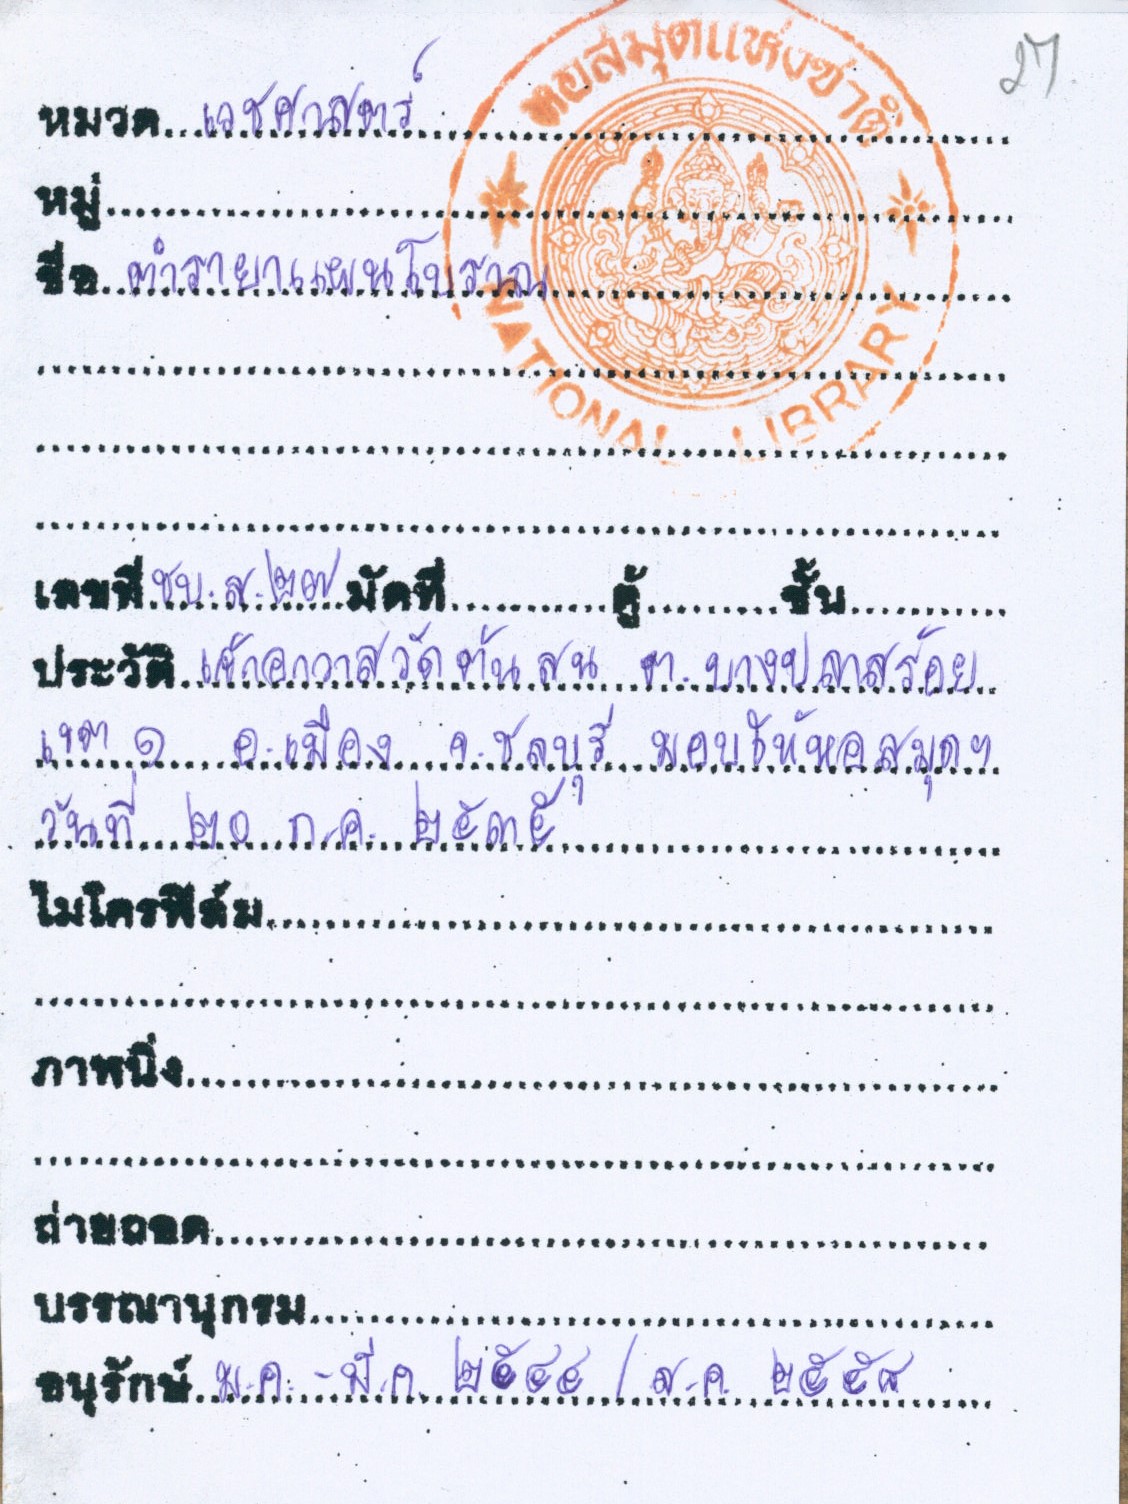 27
หอสมุดแห่งชาติ
NATIONAL LIBRARY
หมวด เวชศาสตร์
หมู่
ชื่อ ตำรายาแผนโบราณ
เลขที่ ชบ.ส.๒๗ มัดที่ ตู้ ชั้น
ประวัติ เจ้าอาวาสวัดต้นสน ต.บางปลาสร้อย
เขต ๑ อ.เมือง จ.ชลบุรี มอบให้หอสมุดฯ
วันที่ ๒๐ ก.ค. ๒๕๓๕
ไมโครฟิล์ม
ภาพนิ่ง
ถ่ายถอด
บรรณานุกรม
อนุรักษ์ ม.ค. - มี.ค. ๒๕๔๔ / ส.ค. ๒๕๕๘